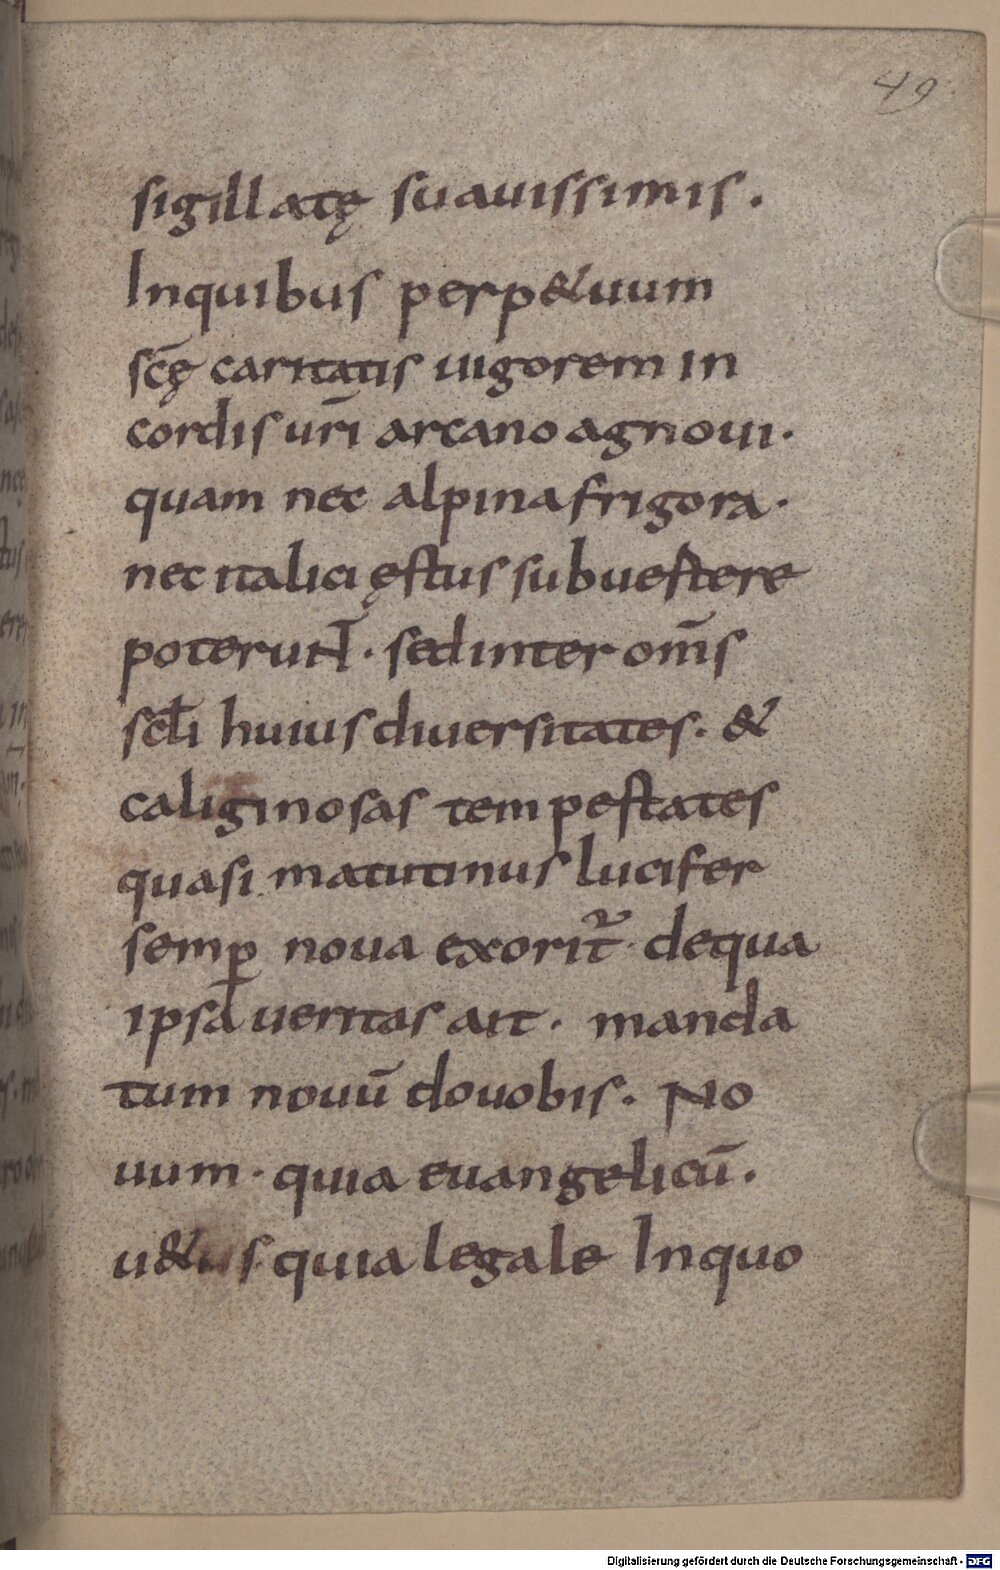 49
sigillatę suauissimis.
Inquibus perp&uum
scę̄ caritatis uigorem in
cordis ur̄i arcano agnoui.
quam nec alpina frigora.
nec italici ęstus subuestere
poterunt. sed inter om̄s
scl̄i huius diuersitates. &
caliginosas tempestates
quasi matutinus lucifer
semꝑ noua exorit̃ dequa
ipsa ueritas ait. manda
tum nouū douobis. No
uum. quia euangelicū.
u&us quia legale Inquo
Digitalisierung gefördert durch die Deutsche Forschungsgemeinschaft - DFG